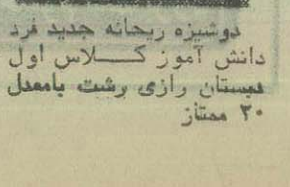 دوشیزه ریحانه جدید فرد
دانش آموز کـــلاس اول
دبستان رازی رشت بامعدل
۲۰ ممتاز